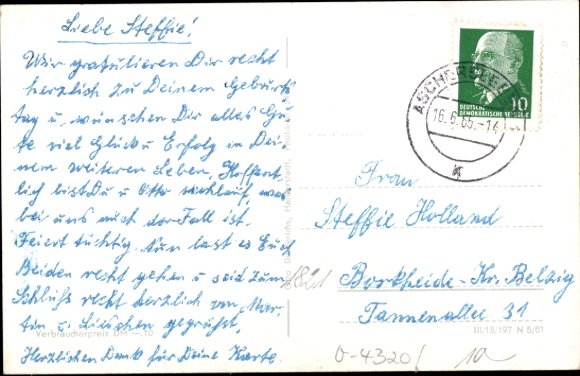 Liebe Steffie!
Wir gratulieren Dir recht
herzlich zu Deinem Geburts
tag u. wünschen Dir alles Gu-
te viel Glück u Erfolg in Dei-
nem weiteren Leben, Hoffent
lich bist Du u Otto wohlauf, was
bei uns auch der Fall ist.
Feiert tüchtig. Nun last es Euch
Beiden recht gehen u seid zum
Schluß recht herzlich von Mar-
tin u Lieschen gegrüßt,
Herzlichen Dank für Deine Karte.
Verbraucherpreis DM —.10
ASCHERSLEBEN
16.6.65.-14
DEUTSCHE
DEMOKRATISCHE REPUBLIK
10
Frau
Steffie Holland
1821
Borkheide-Kr. Belzig
Tannenallee 31
III/18/197 N 5/61
0-4320/
10